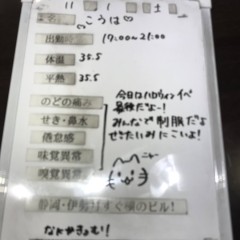 11 1 土
こうは♡
出勤 17:00~21:00
体温 35.5
平熱 35.5
のどの痛み
せき・鼻水
倦怠感
味覚異常
嗅覚異常
今日はハロウィンイベ
最終だよー!
みんなで制服だよ
ぜきたいみにこいよ!
静岡・伊勢はすぐ横のビル!